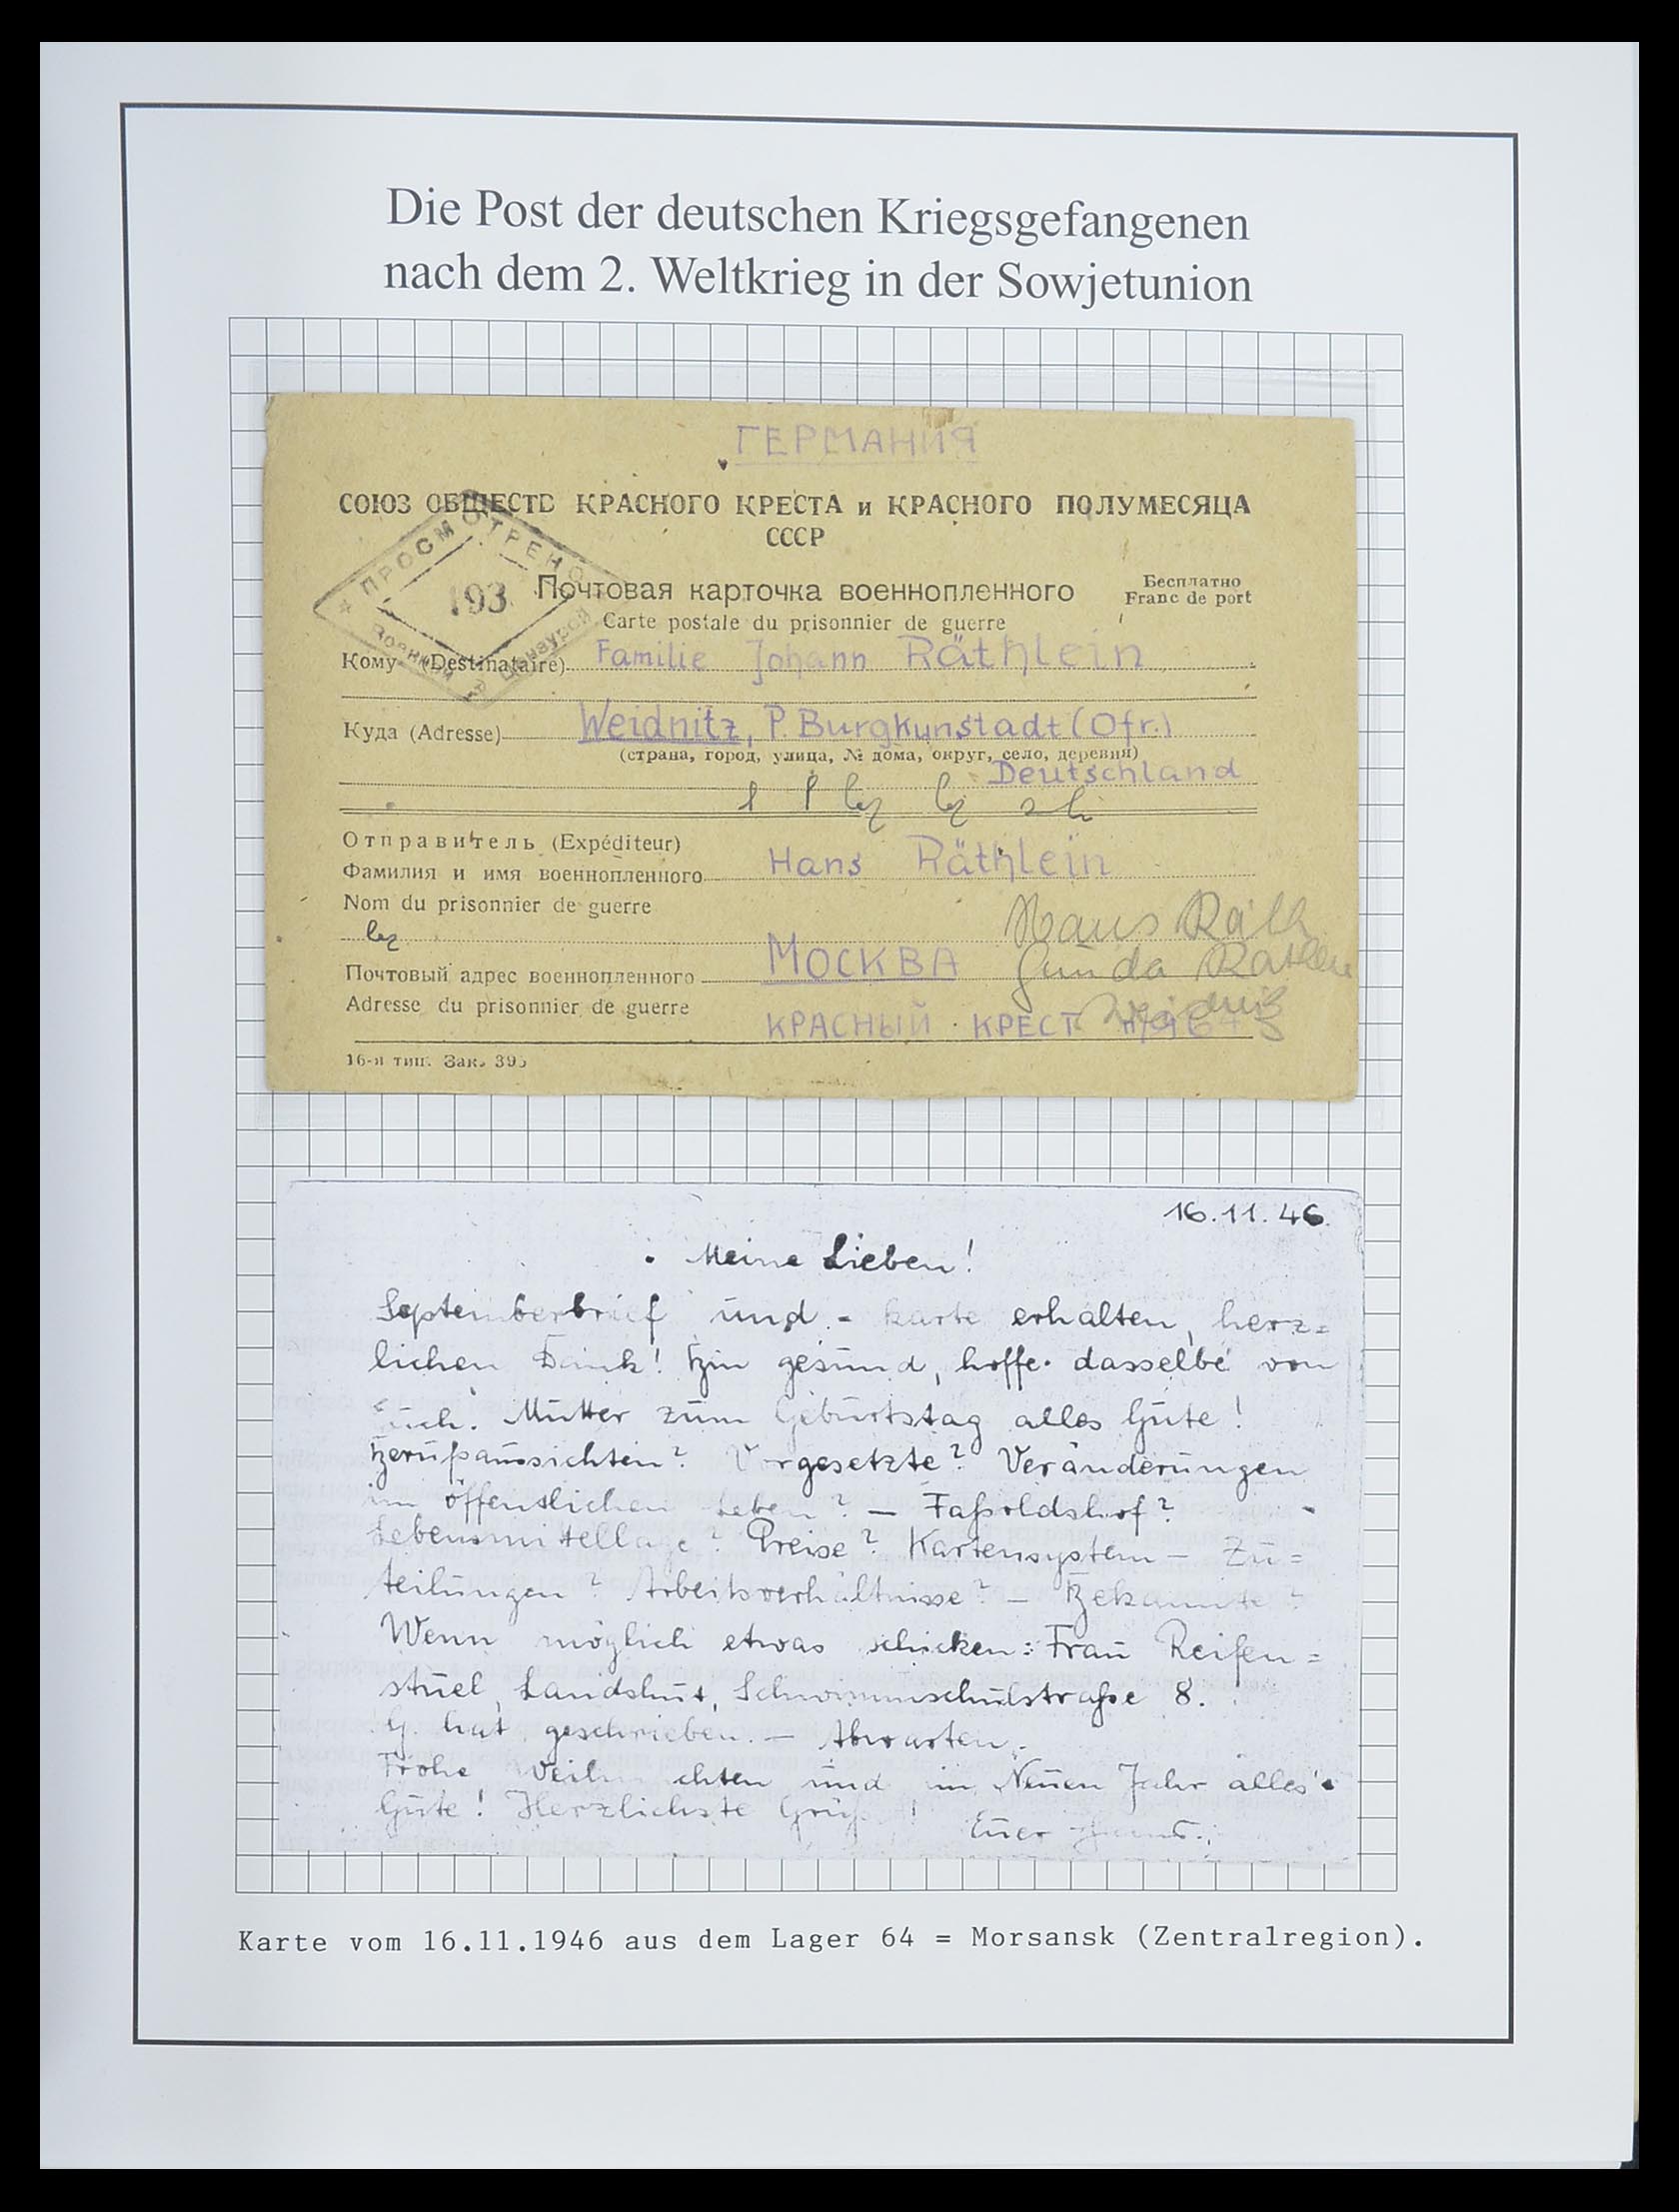 Die Post der deutschen Kriegsgefangenen
nach dem 2. Weltkrieg in der Sowjetunion
ГЕРМАНИЯ
СОЮЗ ОБЩЕСТВ КРАСНОГО КРЕСТА и КРАСНОГО ПОЛУМЕСЯЦА
СССР
ПРОСМОТРЕНО
193
Военной Цензурой
Почтовая карточка военнопленного
Бесплатно
Franc de port
Carte postale du prisonnier de guerre
Кому (Destinataire) Familie Johann Räthlein
Куда (Adresse) Weidnitz, P. Burgkunstadt (Ofr.)
(страна, город, улица, № дома, округ, село, деревня)
Deutschland
Отправитель (Expéditeur)
Фамилия и имя военнопленного Hans Räthlein
Nom du prisonnier de guerre
Hans Räth
Gunda Räthlein
Weidnitz
Почтовый адрес военнопленного МОСКВА
Adresse du prisonnier de guerre
КРАСНЫЙ КРЕСТ
16-я тип. Зак. 395
16.11.46.
Meine Lieben!
Septemberbrief und - karte erhalten, herz=
lichen Dank! Bin gesund, hoffe dasselbe von
Euch. Mutter zum Geburtstag alles Gute!
Berufsaussichten? Vorgesetzte? Veränderungen
im öffentlichen Leben? — Faßoldshof?
Lebensmittellage? Preise? Kartensystem — Zu=
teilungen? Arbeitsverhältnisse? — Bekannte?
Wenn möglich etwas schicken: Frau Reifen=
stuel, Landshut, Schwimmschulstraße 8.
G. hat geschrieben. — Abwarten.
Frohe Weihnachten und im Neuen Jahr alles
Gute! Herzlichste Grüße!
Euer Hans.
Karte vom 16.11.1946 aus dem Lager 64 = Morsansk (Zentralregion).